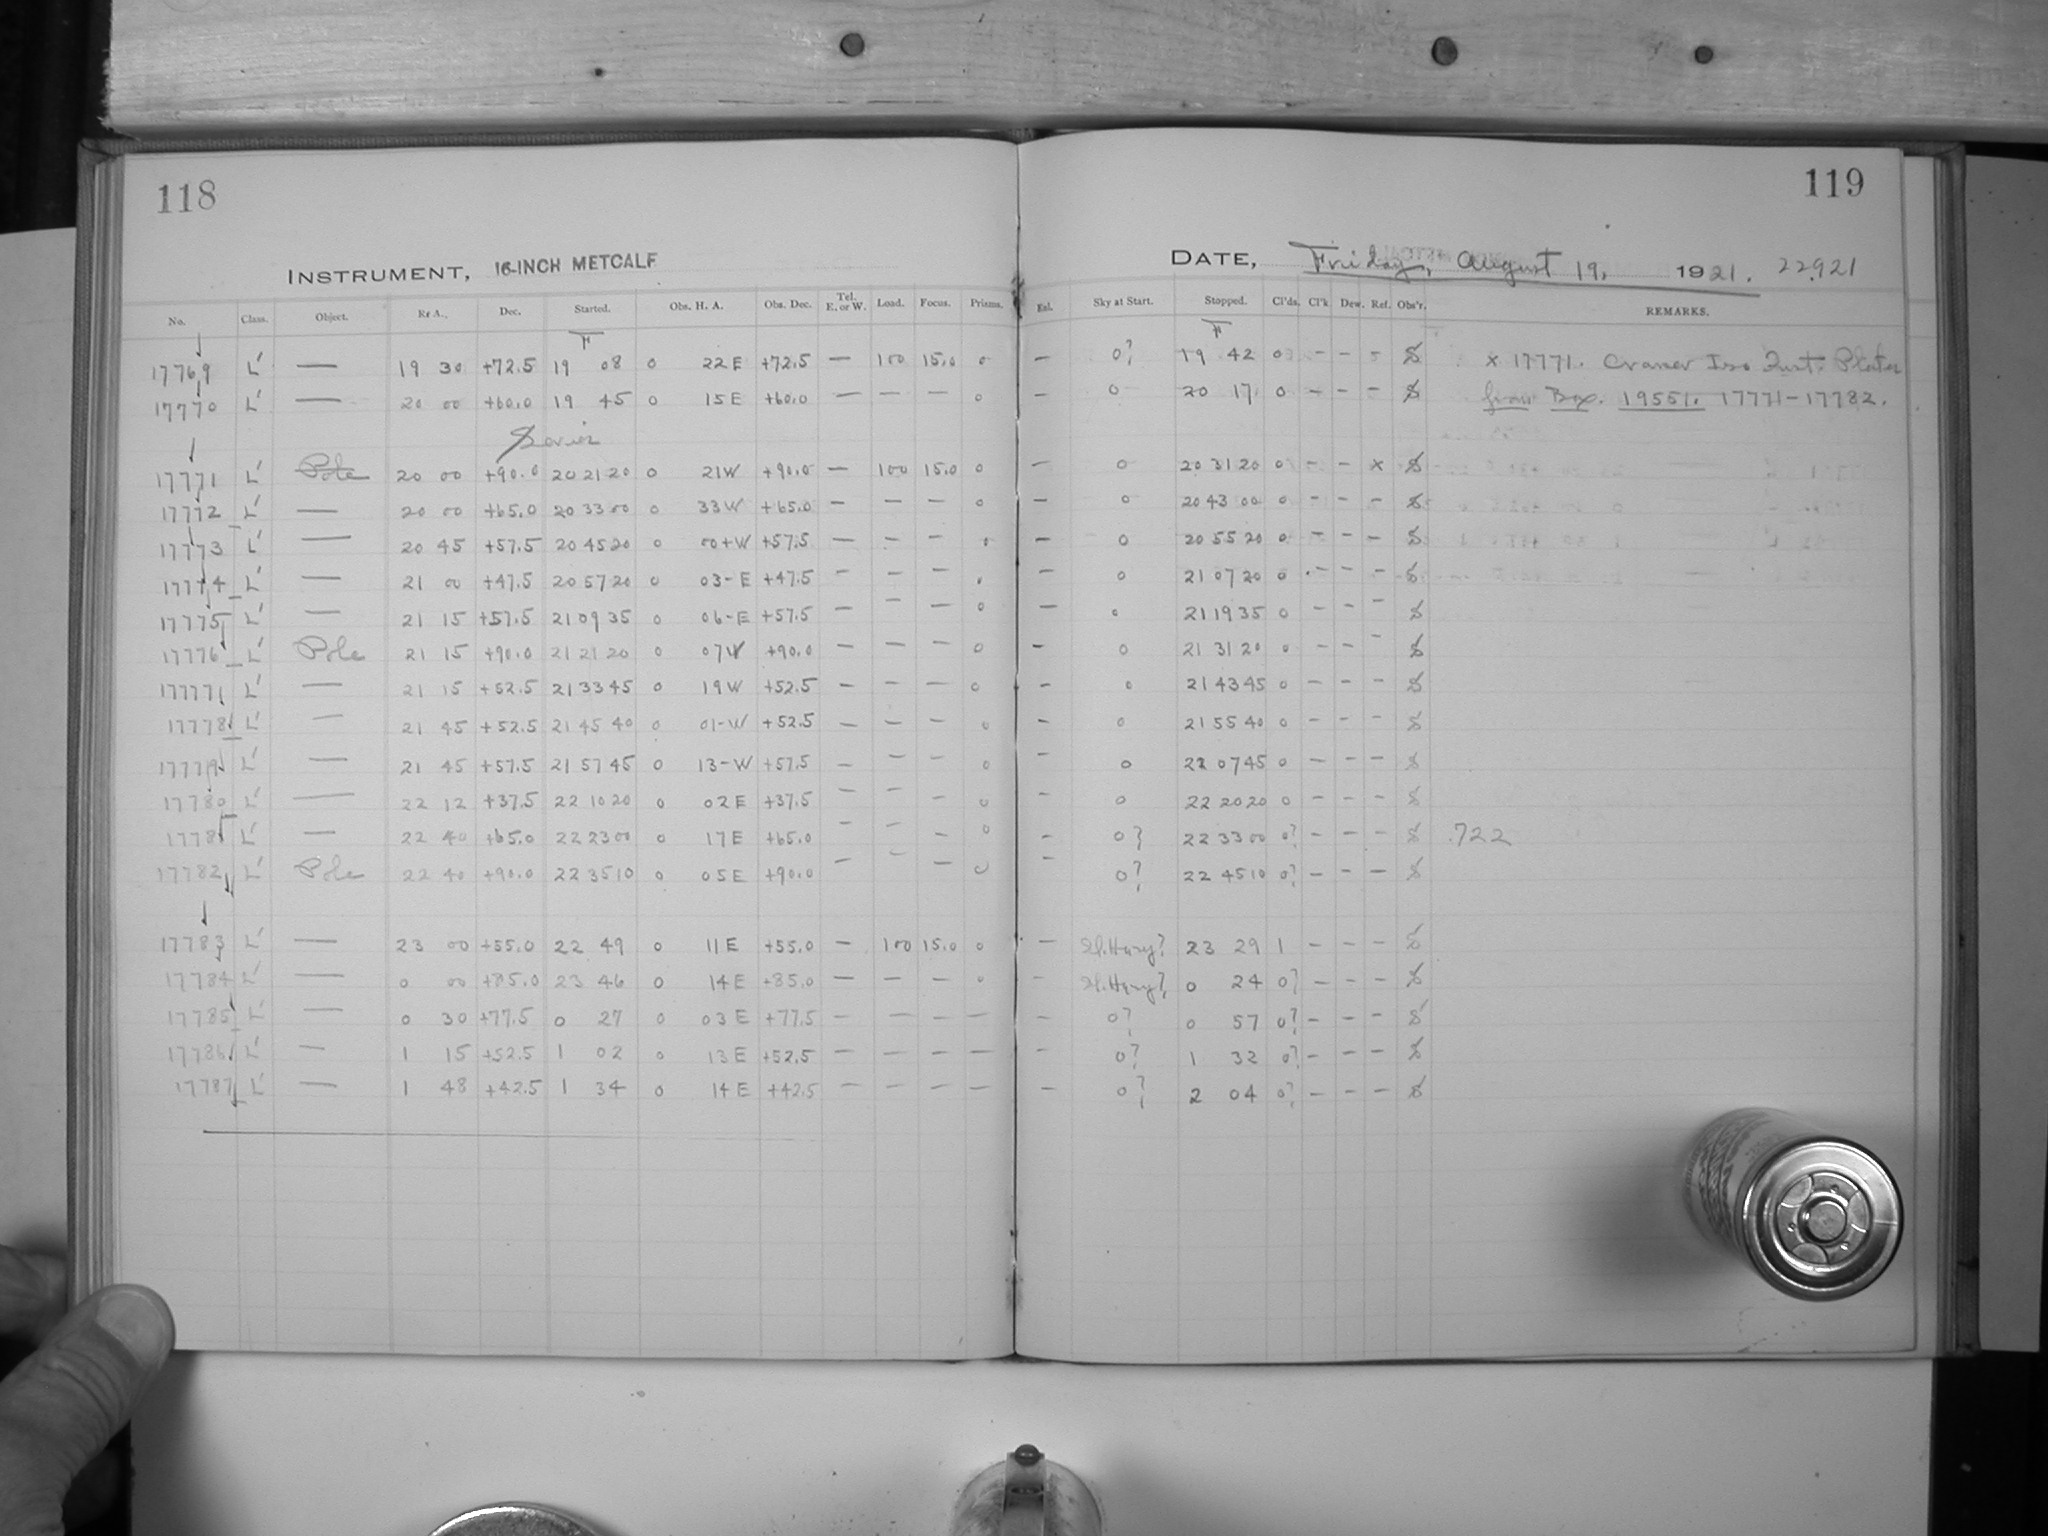 118
119
INSTRUMENT, 16-INCH METCALF
DATE, Friday, August 19, 1921. 22921
No. Class. Object. R.A. Dec. Started. Obs. H. A. Obs. Dec. Tel. E. or W. Load. Focus. Prisms. Exl. Sky at Start. Stopped. Cl'ds. Cl'k. Dew. Ref. Obs'r. REMARKS.
F F
17769 L' — 19 30 +72.5 19 08 0 22 E +72.5 — 100 15.0 0 — 0? 19 42 0 – – – S x 17771. Cramer Iso Inst. Plates
17770 L' — 20 00 +60.0 19 45 0 15 E +60.0 — — — 0 — 0 20 17 0 – – – S from Box. 19551. 17771-17782.
Series
17771 L' Pole 20 00 +90.0 20 21 20 0 21 W +90.0 — 100 15.0 0 — 0 20 31 20 0 – – x S
17772 L' — 20 00 +65.0 20 33 00 0 33 W +65.0 — — — 0 — 0 20 43 00 0 – – – S
17773 L' — 20 45 +57.5 20 45 20 0 00+W +57.5 — — — 0 — 0 20 55 20 0 – – – S
17774 L' — 21 00 +47.5 20 57 20 0 03-E +47.5 — — — 0 — 0 21 07 20 0 – – – S
17775 L' — 21 15 +57.5 21 09 35 0 06-E +57.5 — — — 0 — 0 21 19 35 0 – – – S
17776 L' Pole 21 15 +90.0 21 21 20 0 07 W +90.0 — — — 0 — 0 21 31 20 0 – – – S
17777 L' — 21 15 +52.5 21 33 45 0 19 W +52.5 — — — 0 — 0 21 43 45 0 – – – S
17778 L' — 21 45 +52.5 21 45 40 0 01-W +52.5 — — — 0 — 0 21 55 40 0 – – – S
17779 L' — 21 45 +57.5 21 57 45 0 13-W +57.5 — — — 0 — 0 22 07 45 0 – – – S
17780 L' — 22 12 +37.5 22 10 20 0 02 E +37.5 — — — 0 — 0 22 20 20 0 – – – S
17781 L' — 22 40 +65.0 22 23 00 0 17 E +65.0 — — — 0 — 0? 22 33 00 0? – – – S .722
17782 L' Pole 22 40 +90.0 22 35 10 0 05 E +90.0 — — — 0 — 0? 22 45 10 0? – – – S
17783 L' — 23 00 +55.0 22 49 0 11 E +55.0 — 100 15.0 0 — Sl. Hazy? 23 29 1 – – – S
17784 L' — 0 00 +85.0 23 46 0 14 E +85.0 — — — 0 — Sl. Hazy? 0 24 0? – – – S
17785 L' — 0 30 +77.5 0 27 0 03 E +77.5 — — — — — 0? 0 57 0? – – – S
17786 L' — 1 15 +52.5 1 02 0 13 E +52.5 — — — — — 0? 1 32 0? – – – S
17787 L' — 1 48 +42.5 1 34 0 14 E +42.5 — — — — — 0? 2 04 0? – – – S